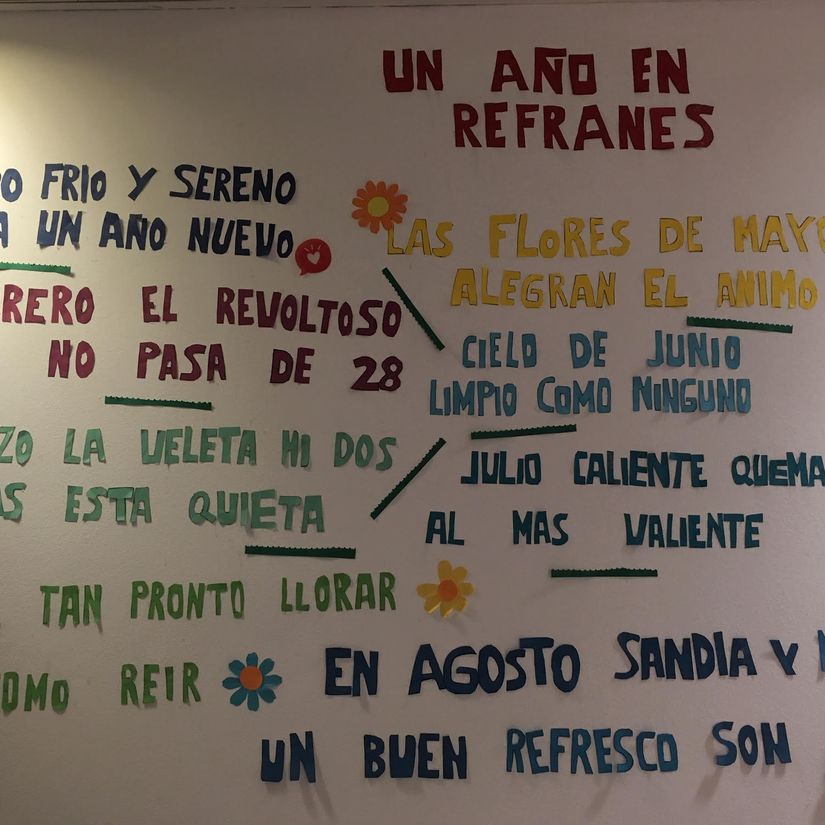 UN AÑO EN
REFRANES
FRIO Y SERENO
UN AÑO NUEVO
RERO EL REVOLTOSO
NO PASA DE 28
ZO LA VELETA HI DOS
AS ESTA QUIETA
TAN PRONTO LLORAR
OMO REIR
LAS FLORES DE MAYO
ALEGRAN EL ANIMO
CIELO DE JUNIO
LIMPIO COMO NINGUNO
JULIO CALIENTE QUEMA
AL MAS VALIENTE
EN AGOSTO SANDIA Y
UN BUEN REFRESCO SON